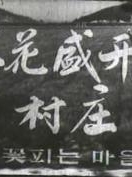 花盛开
村庄
꽃피는